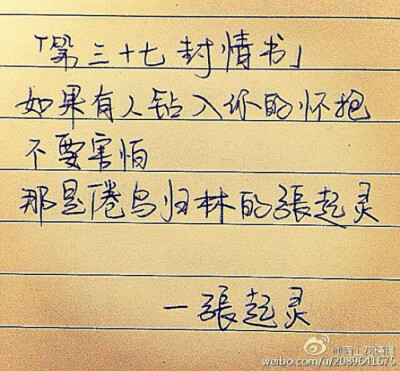 「第三十七封情书」
如果有人钻入你的怀抱
不要害怕
那是倦鸟归林的張起灵
—張起灵
weibo.com/u/2089641675